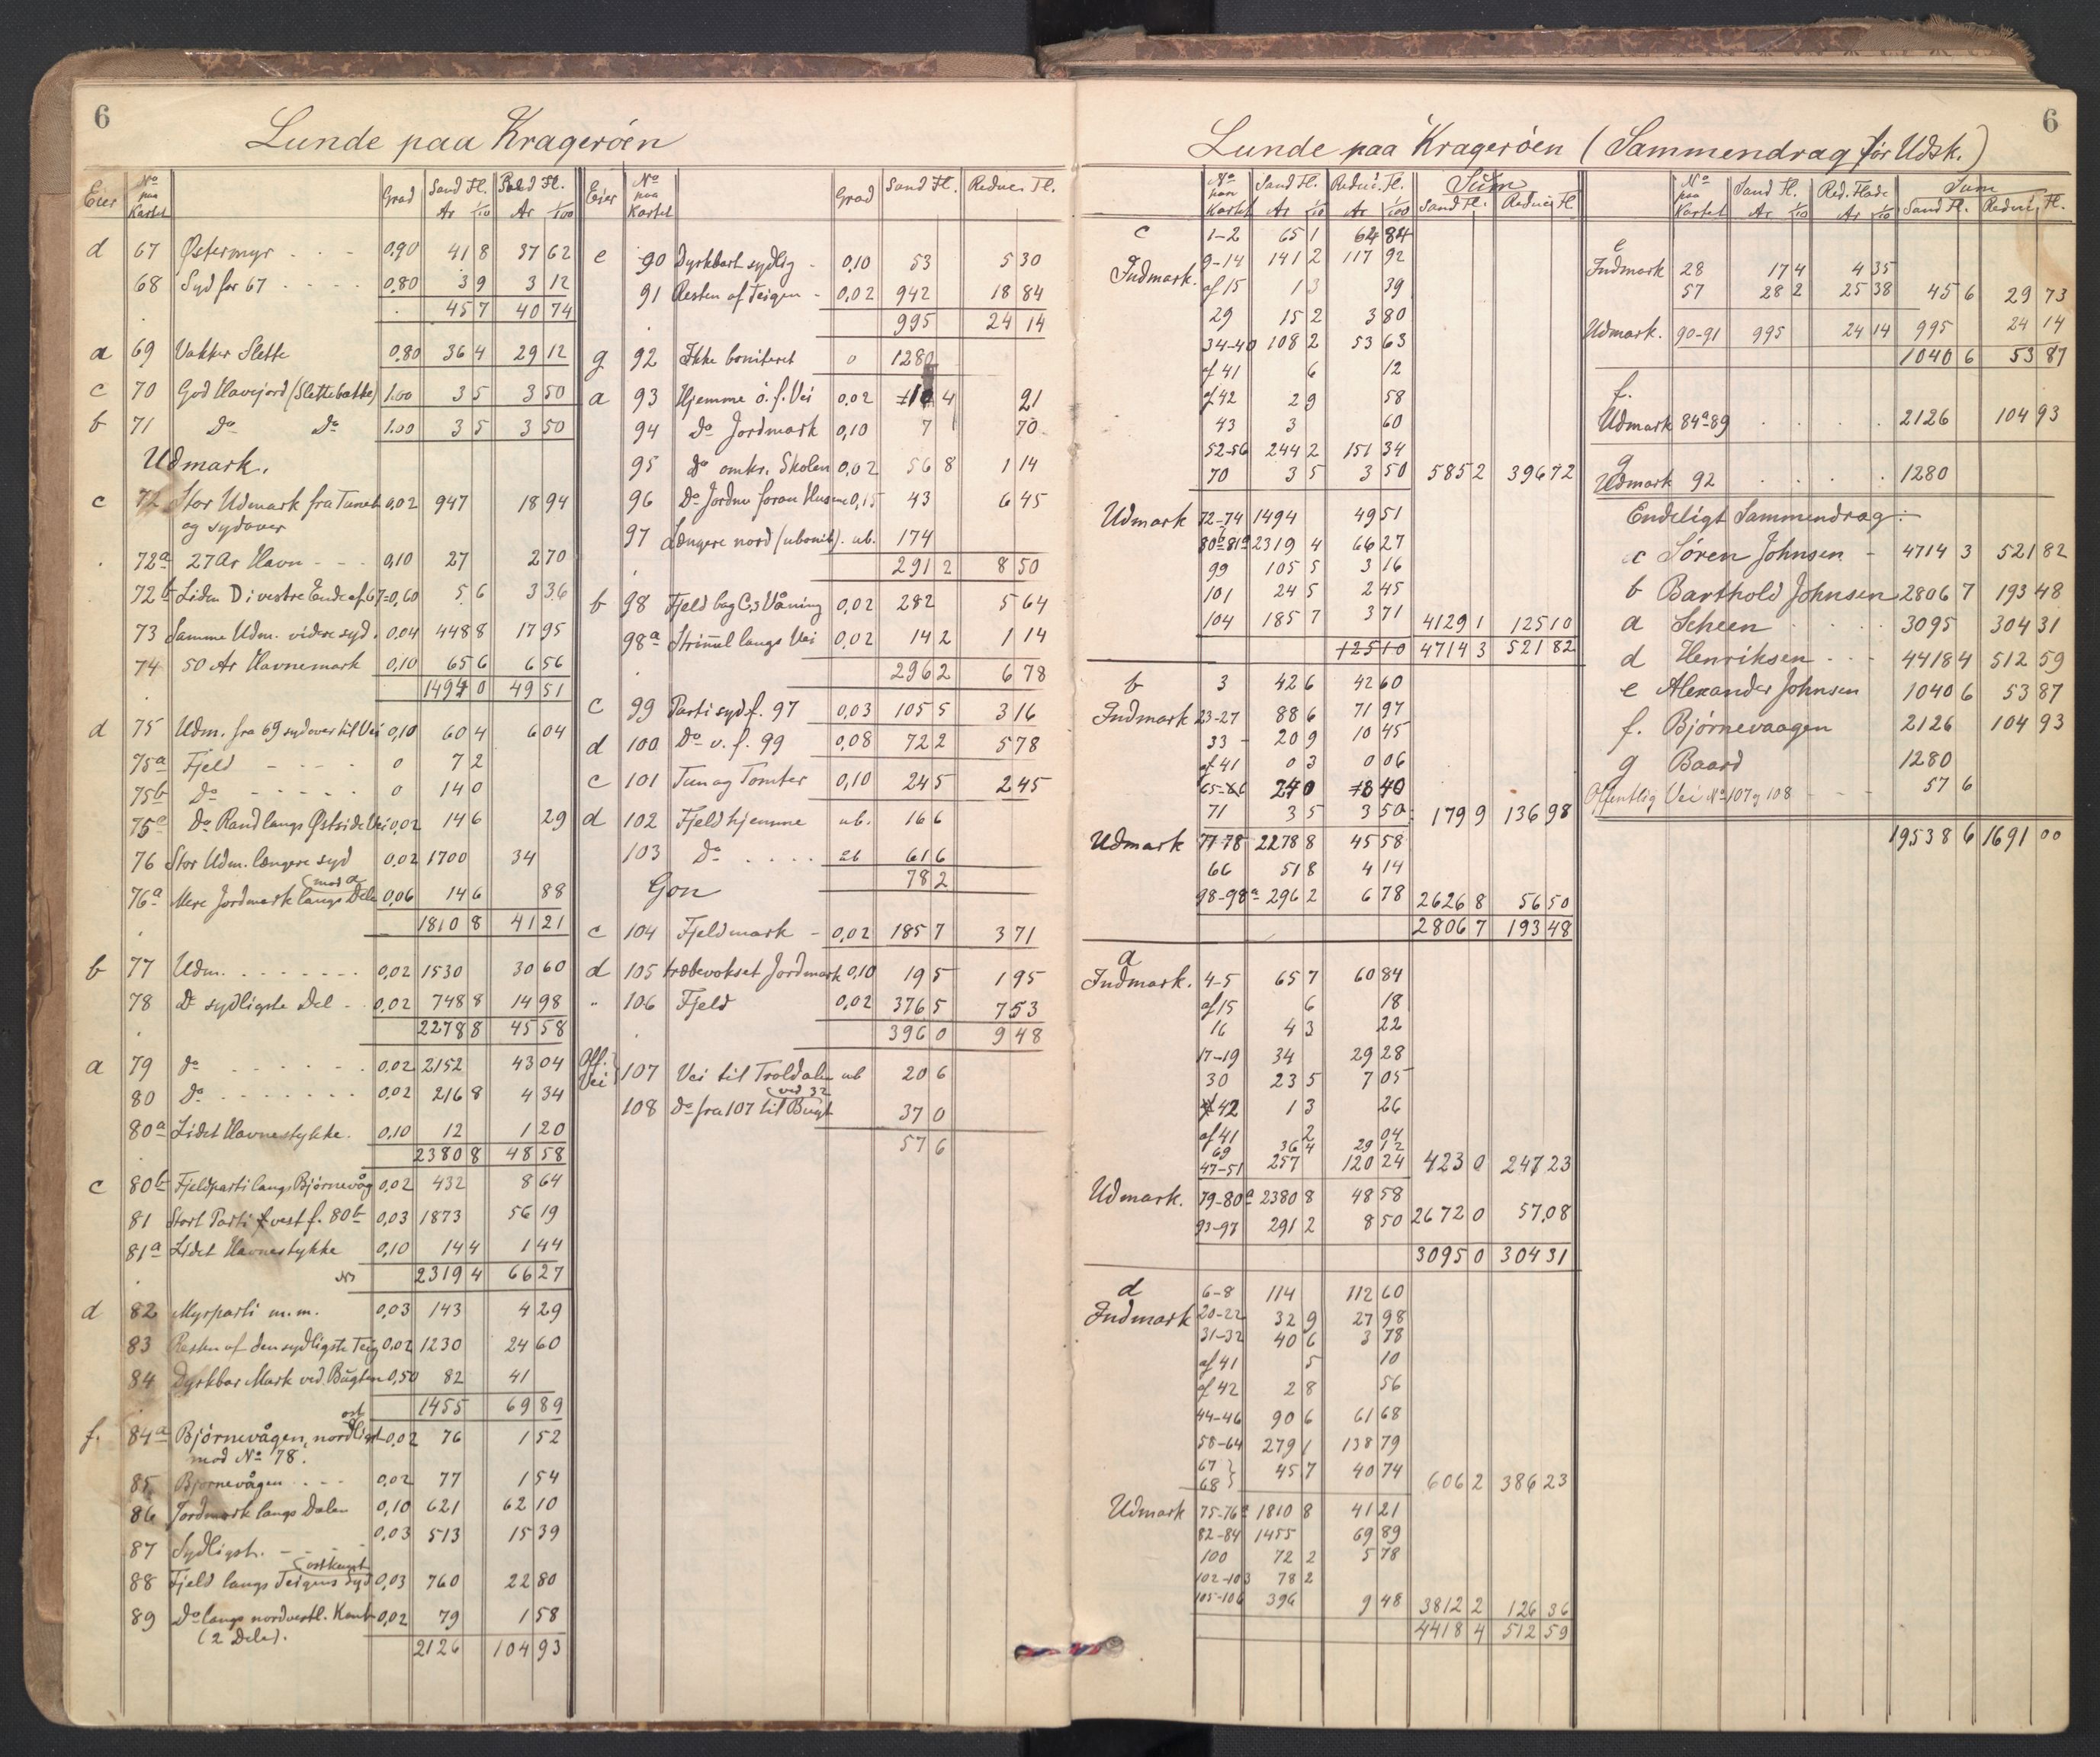 6
Lunde paa Kragerøen
Eier No paa Kartet Grad Sand Fl. Red Fl.
Ar 1/10 Ar 1/100
d 67 Østermyr 0,90 41 8 37 62
68 Syd for 67 0,80 3 9 3 12
45 7 40 74
a 69 Vakker Slette 0,80 36 4 29 12
c 70 God Havejord (Slettebakke) 1.00 3 5 3 50
b 71 Do Do 1.00 3 5 3 50
Udmark.
c 72 Stor Udmark fra Tunet 0,02 947 18 94
og sydover
72a 27 Ar Havn 0,10 27 2 70
72b Liden D i vestre Ende af 67 = 0,60 5 6 3 36
73 Samme Udm. videre syd. 0,04 448 8 17 95
74 50 Ar Havnemark 0,10 65 6 6 56
1494 0 49 51
d 75 Udm. fra 69 sydover til Vei 0,10 60 4 6 04
75a Fjeld 0 7 2
75b Do 0 14 0
75c Do Rand langs Østside Vei 0,02 14 6 29
76 Stor Udm. længere syd 0,02 1700 34
(mod a
76a Mere Jordmark langs Dele 0,06 14 6 88
1810 8 41 21
b 77 Udm. 0,02 1530 30 60
78 Do sydligste Del 0,02 748 8 14 98
2278 8 45 58
a 79 Do 0,02 2152 43 04
80 Do 0,02 216 8 4 34
80a Lidet Havnestykke. 0,10 12 1 20
2380 8 48 58
c 80b Fjeldparti langs Bjørnevåg 0,02 432 8 64
81 Stort Parti vest f. 80b 0,03 1873 56 19
81a Lidet Havnestykke 0,10 14 4 1 44
2319 4 66 27
d 82 Myrparti m.m. 0,03 143 4 29
83 Resten af den sydligste Teig 0,02 1230 24 60
84 Dyrkbar Mark ved Bugten 0,50 82 41
1455 69 89
ost
f. 84a Bjørnevågen, nordligst 0,02 76 1 52
mod No 78.
85 Bjørnevågen 0,02 77 1 54
86 Jordmark langs Dalen 0,10 621 62 10
87 Sydligst. 0,03 513 15 39
(ostkant
88 Fjeld langs Teigens Syd 0,03 760 22 80
89 Do langs nordvestl. Kant 0,02 79 1 58
(2 Dele).
2126 104 93
Eier No paa Kartet Grad Sand Fl. Reduc. Fl.
e 90 Dyrkbart sydlig 0,10 53 5 30
91 Resten af Teigen 0,02 942 18 84
995 24 14
g 92 Ikke boniteret 0 1280
a 93 Hjemme ø. f. Vei 0,02 10 4 21
94 Do Jordmark 0,10 7 70
95 Do omkr. Skolen 0,02 56 8 1 14
96 Do Jordm foran Husene 0,15 43 6 45
97 Længere nord (ubonit). ub. 174
291 2 8 50
b 98 Fjeld bag C,s Våning 0,02 282 5 64
98a Strimmel langs Vei 0,02 14 2 1 14
296 2 6 78
c 99 Parti syd f. 97 0,03 105 5 3 16
d 100 Do v. f. 99 0,08 72 2 5 78
c 101 Tun og Tomter 0,10 24 5 2 45
d 102 Fjeld hjemme ub. 16 6
103 Do ub 61 6
78 2
Gon
c 104 Fjeldmark 0,02 185 7 3 71
d 105 træbevokset Jordmark 0,10 19 5 1 95
" 106 Fjeld 0,02 376 5 7 53
396 0 9 48
Off. Vei 107 Vei til Troldalen ub 20 6
(ved 32
108 Do fra 107 til Bugt 37 0
57 6
6
Lunde paa Kragerøen (Sammendrag før Udsk.)
No paa Kartet Sand Fl. Reduc. Fl. Sum
Ar 1/10 Ar 1/100 Sand Fl. Reduc. Fl
c 1-2 65 1 62 84
Indmark. 9-14 141 2 117 92
af 15 1 3 39
29 15 2 3 80
34-40 108 2 53 63
af 41 6 12
af 42 2 9 58
43 3 60
52-56 244 2 151 34
70 3 5 3 50 585 2 396 72
Udmark 72-74 1494 49 51
80b-81a 2319 4 66 27
99 105 5 3 16
101 24 5 2 45
104 185 7 3 71 4129 1 125 10
125 10 4714 3 521 82
b 3 42 6 42 60
Indmark 23-27 88 6 71 97
33 20 9 10 45
af 41 0 3 0 06
65-66 24 0 8 40
71 3 5 3 50 179 9 136 98
Udmark 77-78 2278 8 45 58
66 51 8 4 14
98-98a 296 2 6 78 2626 8 56 50
2806 7 193 48
a
Indmark. 4-5 65 7 60 84
af 15 6 18
16 4 3 22
17-19 34 29 28
30 23 5 7 05
42 1 3 26
af 41 2 04
69 36 4 29 12
47-51 257 120 24 423 0 247 23
Udmark. 79-80a 2380 8 48 58
93-97 291 2 8 50 2672 0 57,08
3095 0 304 31
d 6-8 114 112 60
Indmark 20-22 32 9 27 98
31-32 40 6 3 78
af 41 5 10
af 42 2 8 56
44-46 90 6 61 68
58-64 279 1 138 79
67 } 45 7 40 74
68 } 606 2 386 23
Udmark 75-76a 1810 8 41 21
82-84 1455 69 89
100 72 2 5 78
102-103 78 2
105-106 396 9 48 3812 2 126 36
4418 4 512 59
No paa Kartet Sand Fl. Red. Flade Sum
Ar 1/10 Ar 1/10 Sand Fl. Reduc. Fl.
e
Indmark 28 17 4 4 35
57 28 2 25 38 45 6 29 73
Udmark. 90-91 995 24 14 995 24 14
1040 6 53 87
f.
Udmark 84a-89 2126 104 93
g
Udmark 92 1280
Endeligt Sammendrag:
c Søren Johnsen 4714 3 521 82
b Barthold Johnsen 2806 7 193 48
a Scheen 3095 304 31
d Henriksen 4418 4 512 59
e Alexander Johnsen 1040 6 53 87
f. Bjørnevaagen 2126 104 93
g Baard 1280
Offentlig Vei No 107 og 108 57 6
19538 6 1691 00